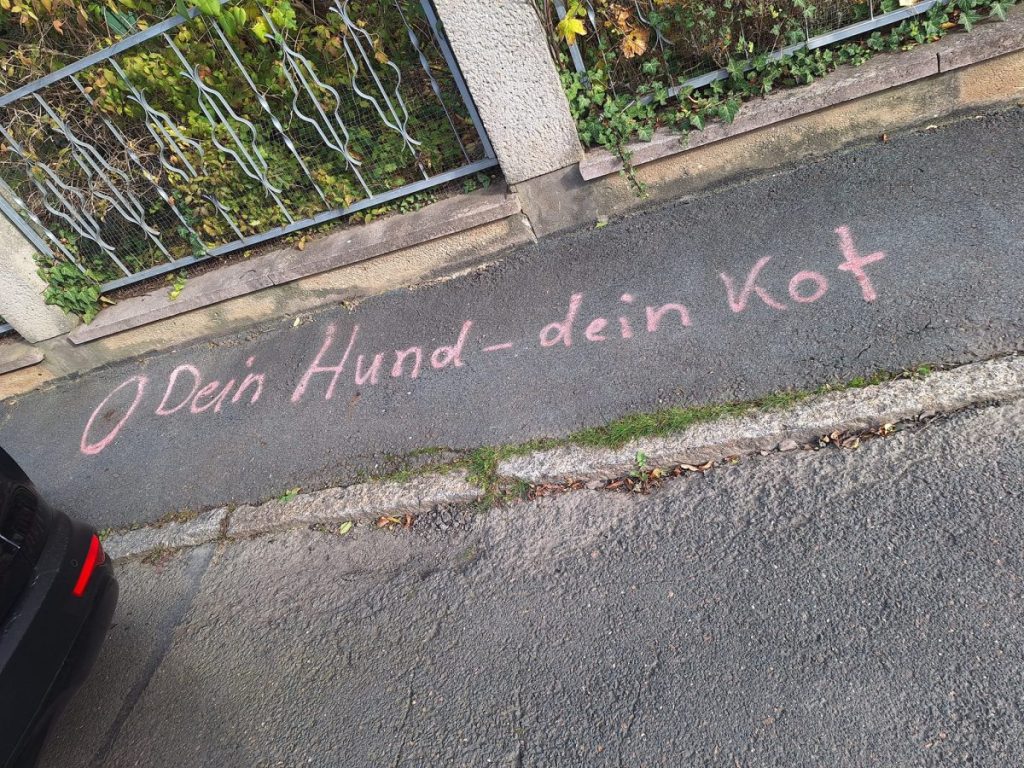 Dein Hund - dein Kot